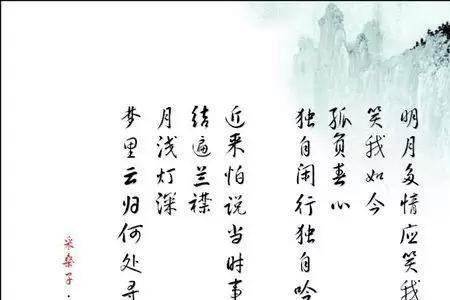 明月多情应笑我
笑我如今
孤负春心
独自闲行独自吟
近来怕说当时事
结遍兰襟
月浅灯深
梦里云归何处寻
采桑子·